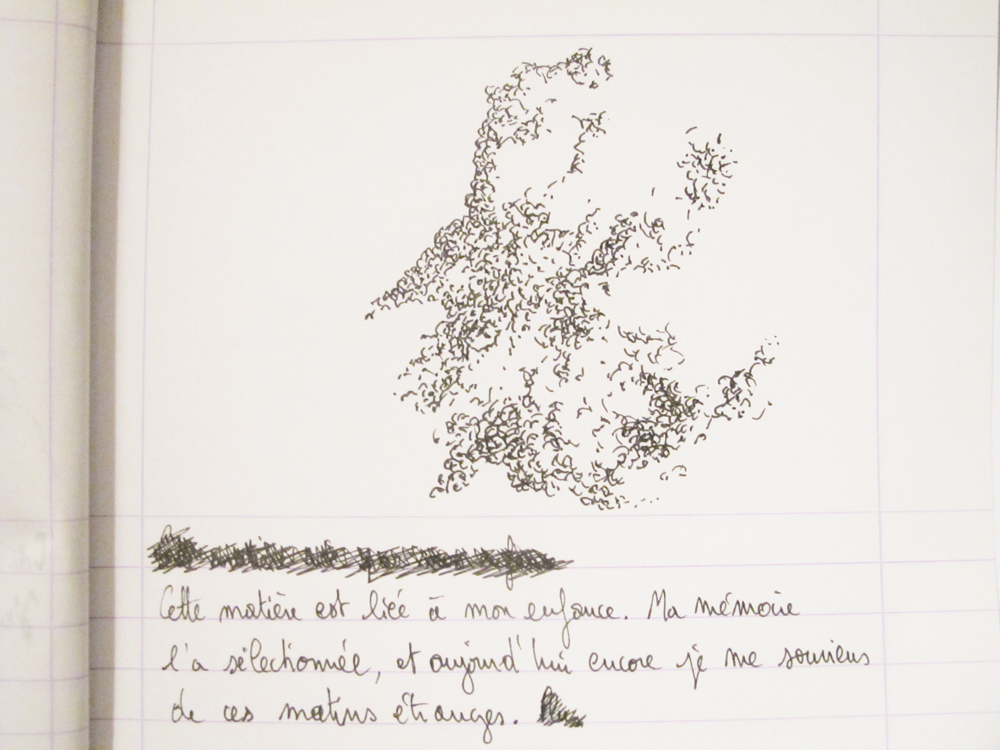 Cette matière est liée à mon enfance. Ma mémoire
l'a sélectionnée, et aujourd'hui encore je me souviens
de ces matins étranges.